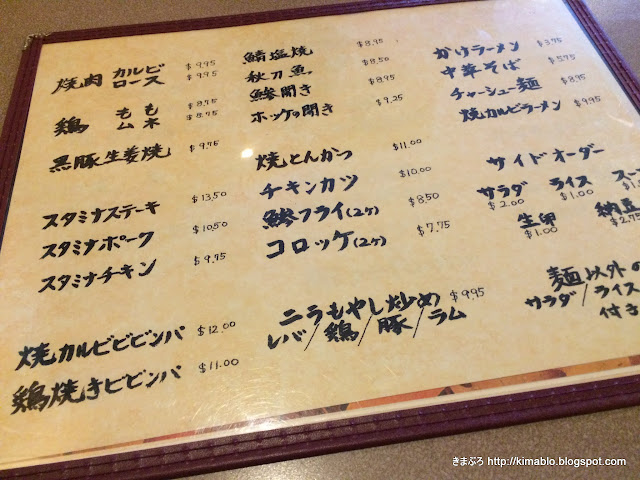 焼肉 カルビ $9.95
ロース $9.95
鶏 もも $8.75
ムネ $8.75
黒豚生姜焼 $9.75
スタミナステーキ $13.50
スタミナポーク $10.50
スタミナチキン $9.95
焼カルビビビンパ $12.00
鶏焼きビビンパ $11.00
鯖塩焼 $8.95
秋刀魚 $8.50
鯵開き $8.95
ホッケの開き $9.25
焼とんかつ $11.00
チキンカツ $10.00
鯵フライ(2ヶ) $8.50
コロッケ(2ヶ) $7.75
ニラもやし炒め $9.95
レバ/鶏/豚/ラム
かけラーメン $3.75
中華そば $5.75
チャーシュー麺 $8.95
焼カルビラーメン $9.95
サイドオーダー
サラダ $2.00 ライス $1.00 スー
生卵 $1.00 納豆 $2.75
麺以外の
サラダ/ライス
付き
きまぶろ http://kimablo.blogspot.com